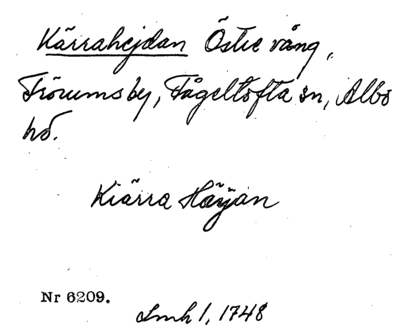 Kärrahejdan Östre vång,
Frörums by, Fågeltofta sn, Albo
hd.
Kiärra Häÿan
Nr 6209.
Lmh 1, 1748